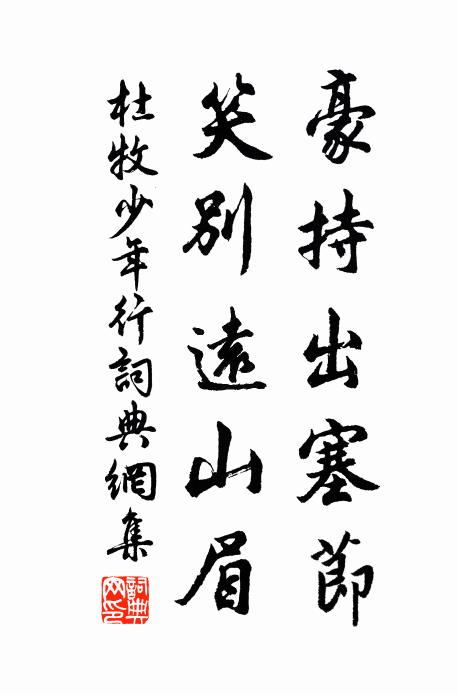 豪持出塞節
笑別遠山眉
杜牧少年行詞典網集
詞典网印